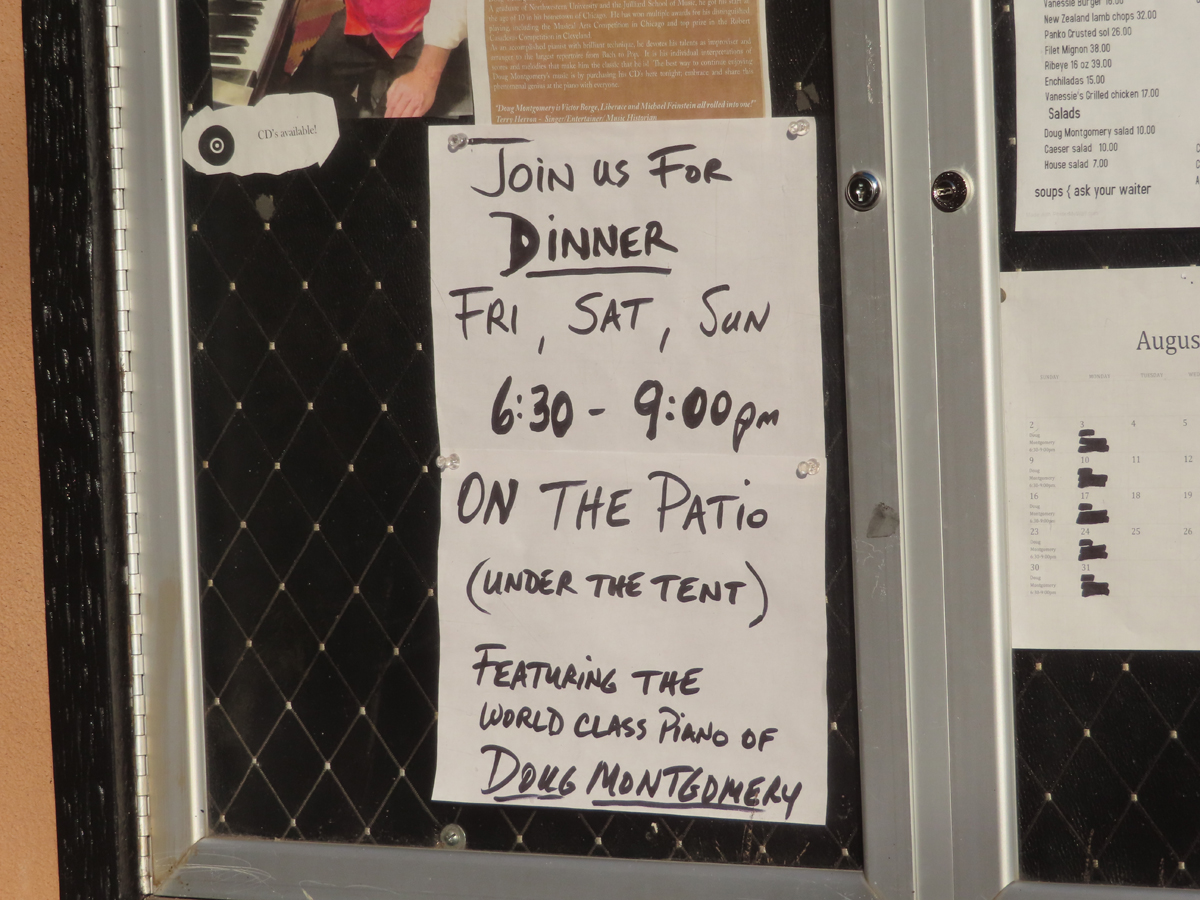 A graduate of Northwestern University and the Juilliard School of Music, he got his start at
the age of 10 in his hometown of Chicago. He has won multiple awards for his distinguished
playing, including the Musical Arts Competition in Chicago and top prize in the Robert
Casadesus Competition in Cleveland.
As an accomplished pianist with brilliant technique, he devotes his talents as improviser and
arranger to the largest repertoire from Bach to Pop. It is his individual interpretations of
Doug Montgomery's music is by purchasing his CD's here tonight; embrace and share this
phenomenal genius at the piano with everyone.
"Doug Montgomery is Victor Borge, Liberace and Michael Feinstein all rolled into one!"
Terry Herron - Singer/Entertainer/ Music Historian
CD's available!
JOIN US FOR
DINNER
FRI, SAT, SUN
6:30 - 9:00pm
ON THE PATIO
(UNDER THE TENT)
FEATURING THE
WORLD CLASS PIANO OF
DOUG MONTGOMERY
Vanessie Burger 16.00
New Zealand lamb chops 32.00
Panko Crusted sol 26.00
Filet Mignon 38.00
Ribeye 16 oz 39.00
Enchiladas 15.00
Vanessie's Grilled chicken 17.00
Salads
Doug Montgomery salad 10.00
Caeser salad 10.00
House salad 7.00
soups { ask your waiter
Augus
SUNDAY MONDAY TUESDAY
2 3 4 5
Doug
Montgomery
9 10 11 12
Doug
Montgomery
16 17 18 19
Doug
Montgomery
23 24 25 26
Doug
Montgomery
30 31
Doug
Montgomery